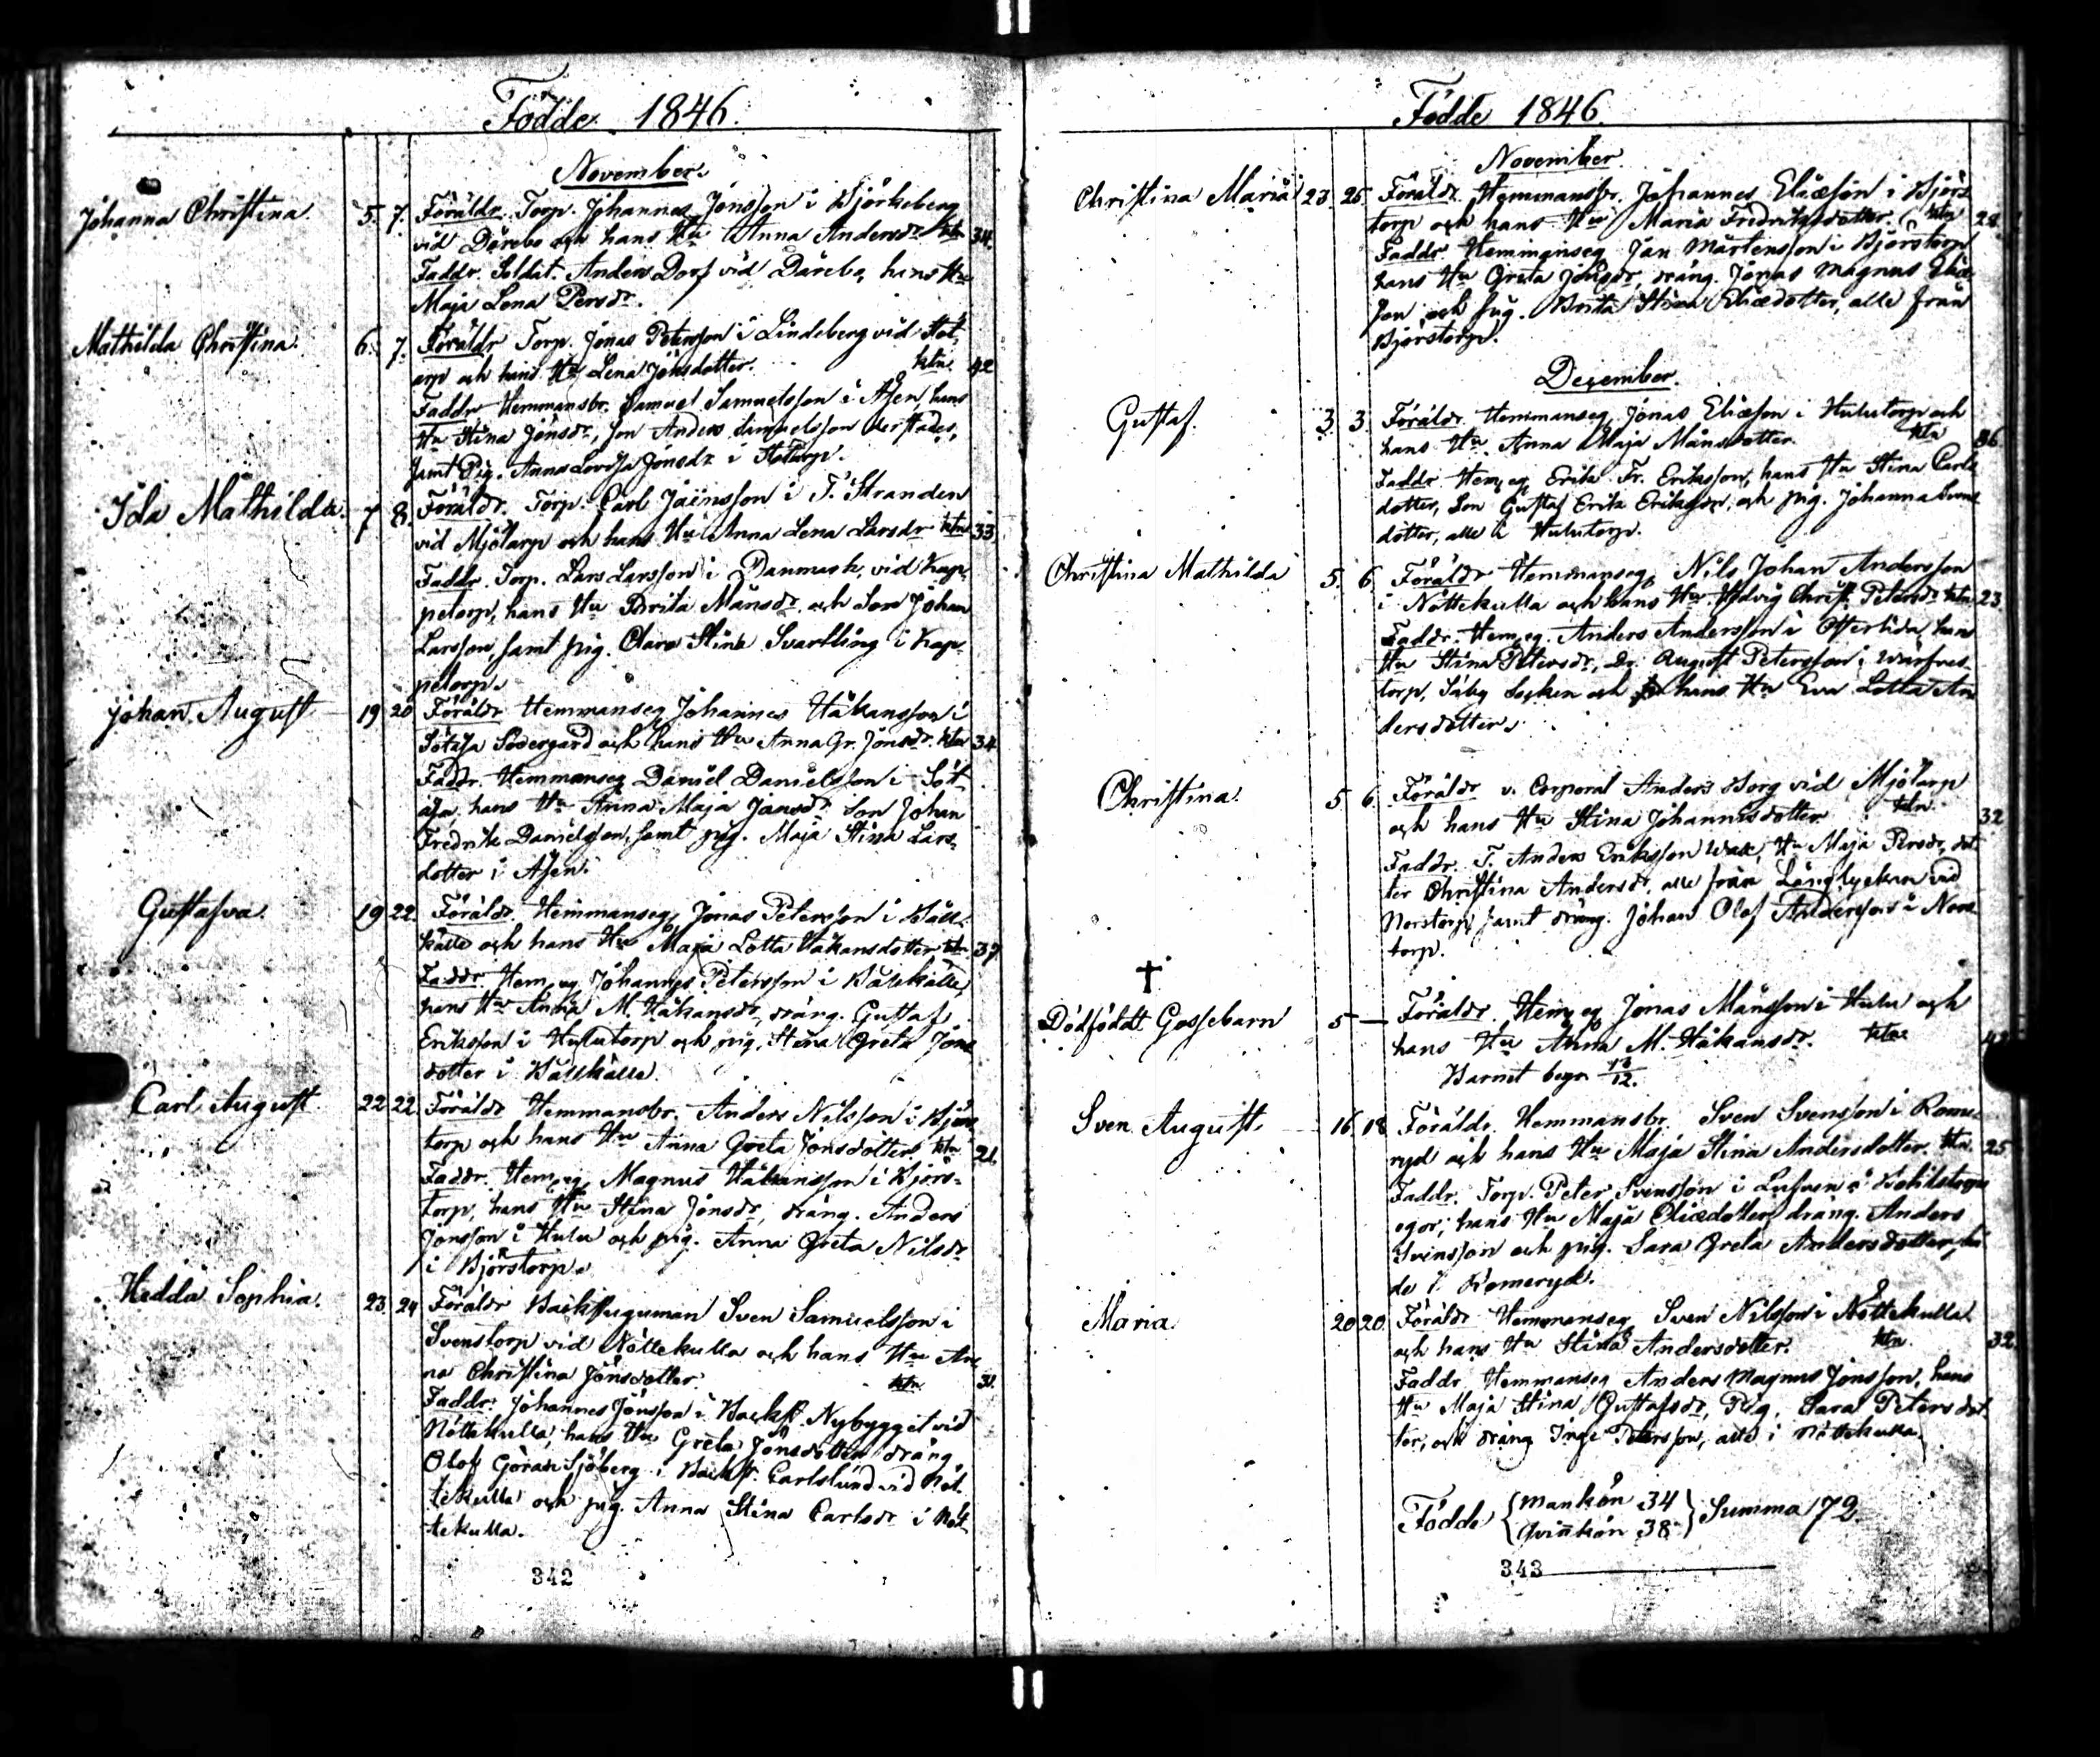 Födde 1846.
November.
Johanna Christina. 5. 7. Föräldr. Torp. Johannes Jonsson i Björkeberg
vid Därebo och hans Hu Anna Andersdr ktn 34.
Faddr. Soldat. Anders Dorf vid Därebo, hans Hu
Maja Lena Persdr.
Mathilda Christina. 6. 7. Föräldr Torp. Jonas Petersson i Lindeberg vid
arp och hans Hu Lena Jönsdotter. ktn. 42
Faddr Hemmansbr. Samuel Samuelsson i Åsen, hans
Hu Stina Jönsdr, son Anders Samuelsson derstädes,
samt Pig. Anna Lovisa Jönsdr i
Ida Mathilda. 7 8. Föräldr. Torp. Carl Jainsson i T. Stranden
vid Mjölarp och hans Hu Anna Lena Larsdr ktn 33
Faddr. Torp. Lars Larsson i Danmark, vid Kap-
petorp, hans Hu Brita Månsdr och Son Johan
Larsson, samt pig. Clara Stina Svartling i Kap-
petorp.
Johan August 19 20 Föräldr Hemmanseg Johannes Håkansson i
Sötåsa Södergård och hans Hu Anna Gr. Jonsdr. ktn 34
Faddr. Hemmanseg Daniel Danielsson i Söt-
åsa, hans Hu Anna Maja Jansdr Son Johan
Fredrik Danielsson, samt pig. Maja Stina Lars-
dotter i Åsen.
Gustafva. 19 22. Föräldr. Hemmanseg, Jonas Petersson i Käll-
källe och hans Hu Maja Lotta Håkansdotter ktn 37
Faddr. Hem. eg Johannes Petersson i
hans Hu Anna M. Håkansdr, dräng. Gustaf
Eriksson i Hulutorp och pig. Stina Greta Jöns
dotter i
Carl August 22 22. Föräldr Hemmansbr. Anders Nilsson i Björs
torp och hans Hu Anna Greta Jönsdotter, ktn 21.
Faddr. Hem. eg, Magnus Håkansson i Björs-
torp, hans Hu Stina Jönsdr, dräng. Anders
Jonsson i Hulu och pig. Anna Greta Nilsdr
i Björstorp.
Hedda Sophia. 23. 24 Föräldr Backstuguman Sven Samuelsson i
Svenstorp vid Nöttekulla och hans Hu An
na Christina Jönsdotter. ktn
Faddr: Johannes Jönsson i Backst. Nybygget vid
Nöttekulla, hans Hu Greta Jönsdotter dräng
Olof Göran Sjöberg i Backst. Carlslund vid Nöt
tekulla och pig. Anna Stina Carlsdr i Nöt-
tekulla.
342
Födde 1846.
November.
Christina Maria 23. 25. Föräldr. Hemmansbr. Johannes Eliæson i Björs
torp och hans Hu Maria Fredriksdotter. ktn 28.
Faddr. Hemmanseg Jan Mårtensson i Björstorp
hans Hu Greta Jönsdr, dräng. Jonas Magnus Eliæ
son och pig. Brita Stina Eliædotter, alle från
Björstorp.
December.
Gustaf. 3. 3. Föräldr. Hemmanseg. Jonas Eliæson i Hulutorp och
hans Hu. Anna Maja Månsdotter. ktn 36
Faddr Hem. eg Erik Fr. Eriksson, hans Hu Stina Carls
dotter, Son Gustaf Erik Eriksson, och pig. Johanna Svens
dotter, alle i Hulutorp.
Christina Mathilda 5. 6. Föräldr Hemmanseg, Nils Johan Andersson
i Nöttekulla och hans Hu Hedvig Christ. Petersdr ktn 23
Faddr. Hem. eg. Anders Andersson i hans
Hu Stina Petersdr, Dr. August Petersson i
torp, Säby Socken och hans Hu Eva Lotta An
dersdotter.
Christina. 5 6. Föräldr v. Corporal Anders Borg vid Mjölarp
och hans Hu Stina Johannisdotter ktn. 32
Faddr. T. Anders Eriksson Hu Maja Persdr, dot
ter Christina Andersdr, alle från Långlyckan vid
Norstorp, samt dräng. Johan Olof Andersson i Nors
torp.
†
Dödföddt Gossebarn 5 — Föräldr. Hem. eg Jonas Månsson i Hulu och
hans Hu Anna M. Håkansdr. ktn
Barnet begr 13/12.
Sven August 16 18 Föräldr. Hemmansbr. Sven Svensson i Rome-
ryd och hans Hu Maja Stina Andersdotter. ktn 25
Faddr. Torp. Peter Svensson i
egor, hans Hu Maja Eliædotter, dräng. Anders
Svensson och pig. Sara Greta Andersdotter, bå
de i Romeryd.
Maria 20 20. Föräldr Hemmanseg, Sven Nilsson i Nöttekulla
och hans Hu Stina Andersdotter. ktn. 32.
Faddr Hemmanseg Anders Magnus Jönsson, hans
Hu Maja Stina Gustafsdr, Pig. Sara Petersdot
ter, och dräng Inge Petersson, alle i Nöttekulla.
Födde { Mankön 34 } Summa 72
Qvinkön 38
343